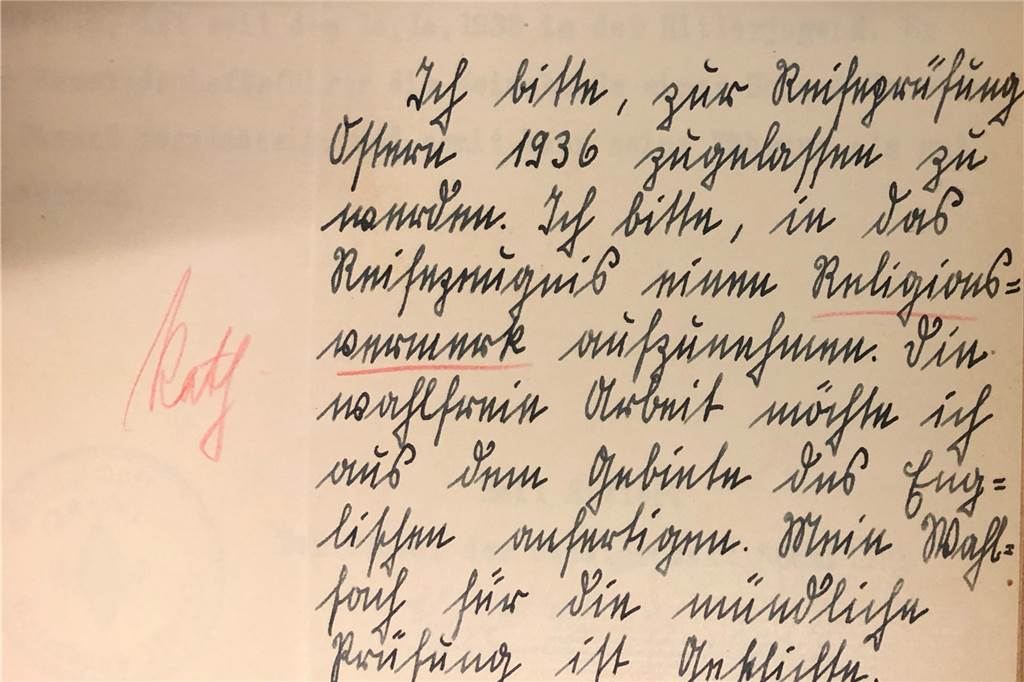 Ich bitte, zur Reifeprüfung
Ostern 1936 zugelassen zu
werden. Ich bitte, in das
Reifezeugnis einen Religions=
vermerk aufzunehmen. Die
Kath
wahlfreie Arbeit möchte ich
aus dem Gebiete des Eng=
lischen anfertigen. Mein Wahl=
fach für die mündliche
Prüfung ist Geschichte.